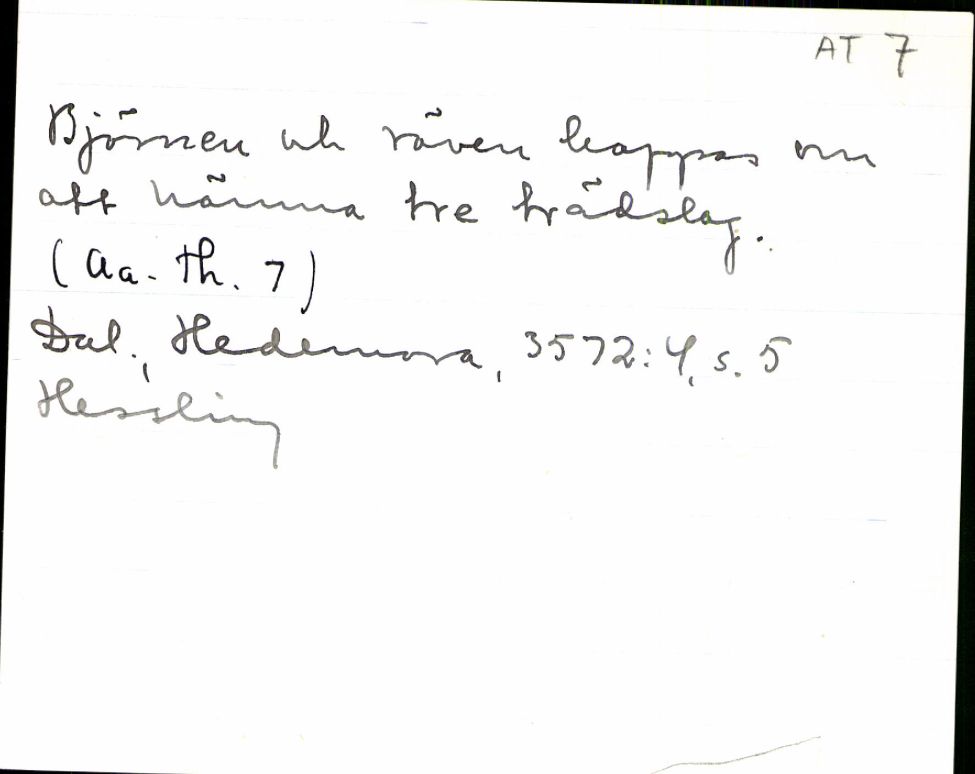 AT 7
Björnen och räven kappas om
att nämna tre trädslag.
(Aa-Th. 7)
Dal., Hedemora, 3572:4, s. 5
Hessling